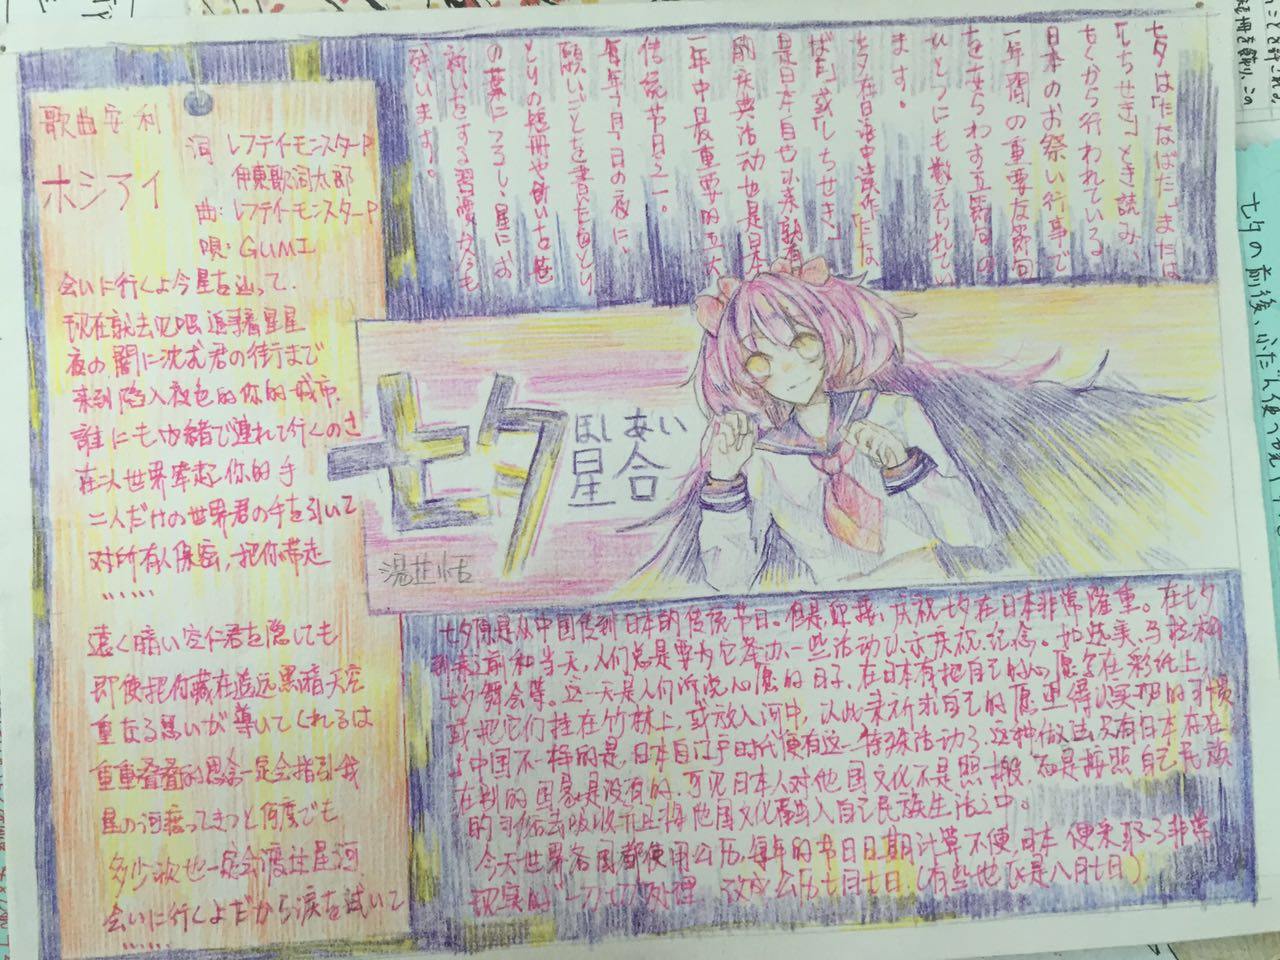 歌曲安利
ホシアイ
词 レフティーモンスターP
伊東歌詞太郎
曲:レフティーモンスターP
唄:GUMI
会いに行くよ今星を辿って.
现在就去见吧 追寻着星星
夜の闇に沈む君の街まで
来到陷入夜色的你的城市.
誰にも内緒で連れて行くのさ
在二人世界牵起你的手
二人だけの世界君の手を引いて
对所有人保密,把你带走
……
遠く暗い空に君を隠しても
即使把你藏在遥远黑暗天空
重なる思いが導いてくれるは
重重叠叠的思念一定会指引我
星の河渡ってきっと何度でも
多少次也一定会渡过星河
会いに行くよだから涙を拭いて
……
七夕は「たなばた」または
「しちせき」とき読み、
古くから行われている
日本のお祭り行事で
一年間の重要な節句
をあらわす五節句の
ひとつにも数えられてい
ます。
七夕在日语中读作「たな
ばた」或「しちせき」
是日本自古以来就有
的庆典活动也是日本
一年中最重要的五大
传统节日之一。
毎年7月7日の夜に、
願いごとを書いた色とり
どりの短冊や飾いを笹
の葉につるし、星にお
祈りをする習慣が今も
残います。
七夕
ほしあい
星合
七夕原是从中国传到日本的传统节日。但是,迎接、庆祝七夕在日本非常隆重。在七夕
到来之前和当天,人们总是要为它举办一些活动以示庆祝、纪念。如选美、马拉松
七夕舞会等。这一天是人们诉说心愿的日子,在日本有把自己的心愿写在彩纸上,
或把它们挂在竹林上,或放入河中,以此来祈求自己的愿望得以实现的习惯
与中国不一样的是,日本自江户时代便有这一特殊活动了.这种做法只有日本存在
在别的国家是没有的.可见日本人对他国文化不是照搬,而是按照自己民族
的习俗去吸收并且将他国文化融入自己民族生活之中。
今天世界各国都使用公历,每年的节日日期计算不便,日本便采取了非常
现实的“一刀切”处理 改成公历七月七日.(有些地区是八月七日)
七夕の前後、ふだん使